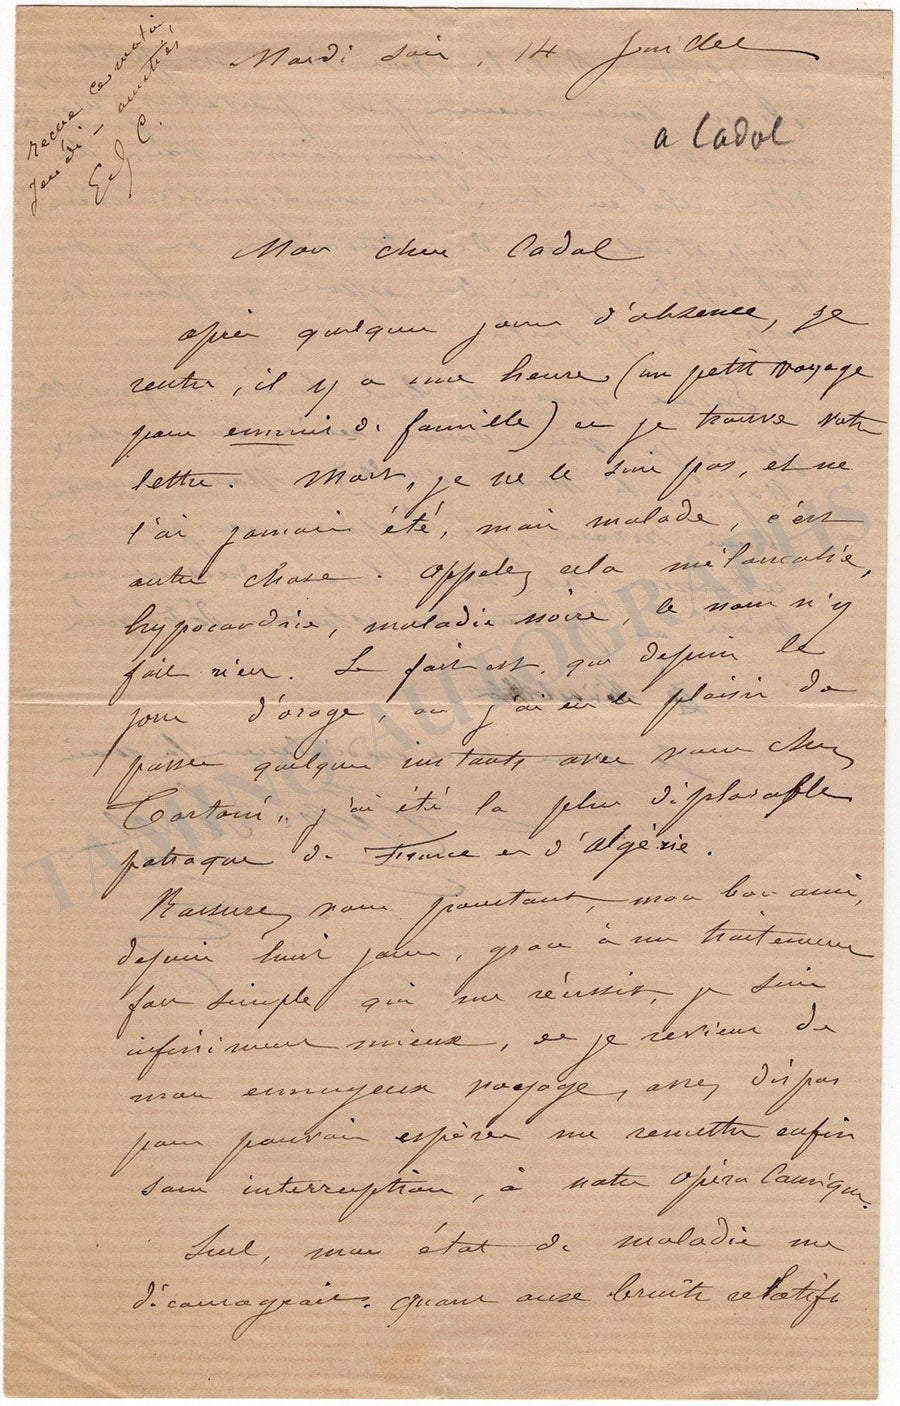 recue ce matin
Jeudi – amitiés
Ed. C.
Mardi soir, 14 Juillet
a Cadol
Mon cher Cadol
après quelques jours d'absence, je
rentre, il y a une heure (un petit voyage
pour ennuis de famille) et je trouve votre
lettre. Mort, je ne le suis pas, et ne
l'ai jamais été, mais malade, c'est
autre chose. Appelez cela mélancolie,
hypocondrie, maladie noire, le nom n'y
fait rien. Le fait est, que depuis le
jour d'orage, où j'ai eu le plaisir de
passer quelques instants avec vous chez
Tortoni, j'ai été la plus déplorable
patraque de France et d'Algérie.
Rassurez vous pourtant, mon bon ami,
depuis huit jours, grace à un traitement
fort simple qui me réussit, je suis
infiniment mieux, et je reviens de
mon ennuyeux voyage, assez dispos
pour pouvoir espérer me remettre enfin
sans interruption, à notre opéra comique.
Seul, mon état de maladie me
décourageait. Quant aux bruits relatifs
TAMINO AUTOGRAPHS